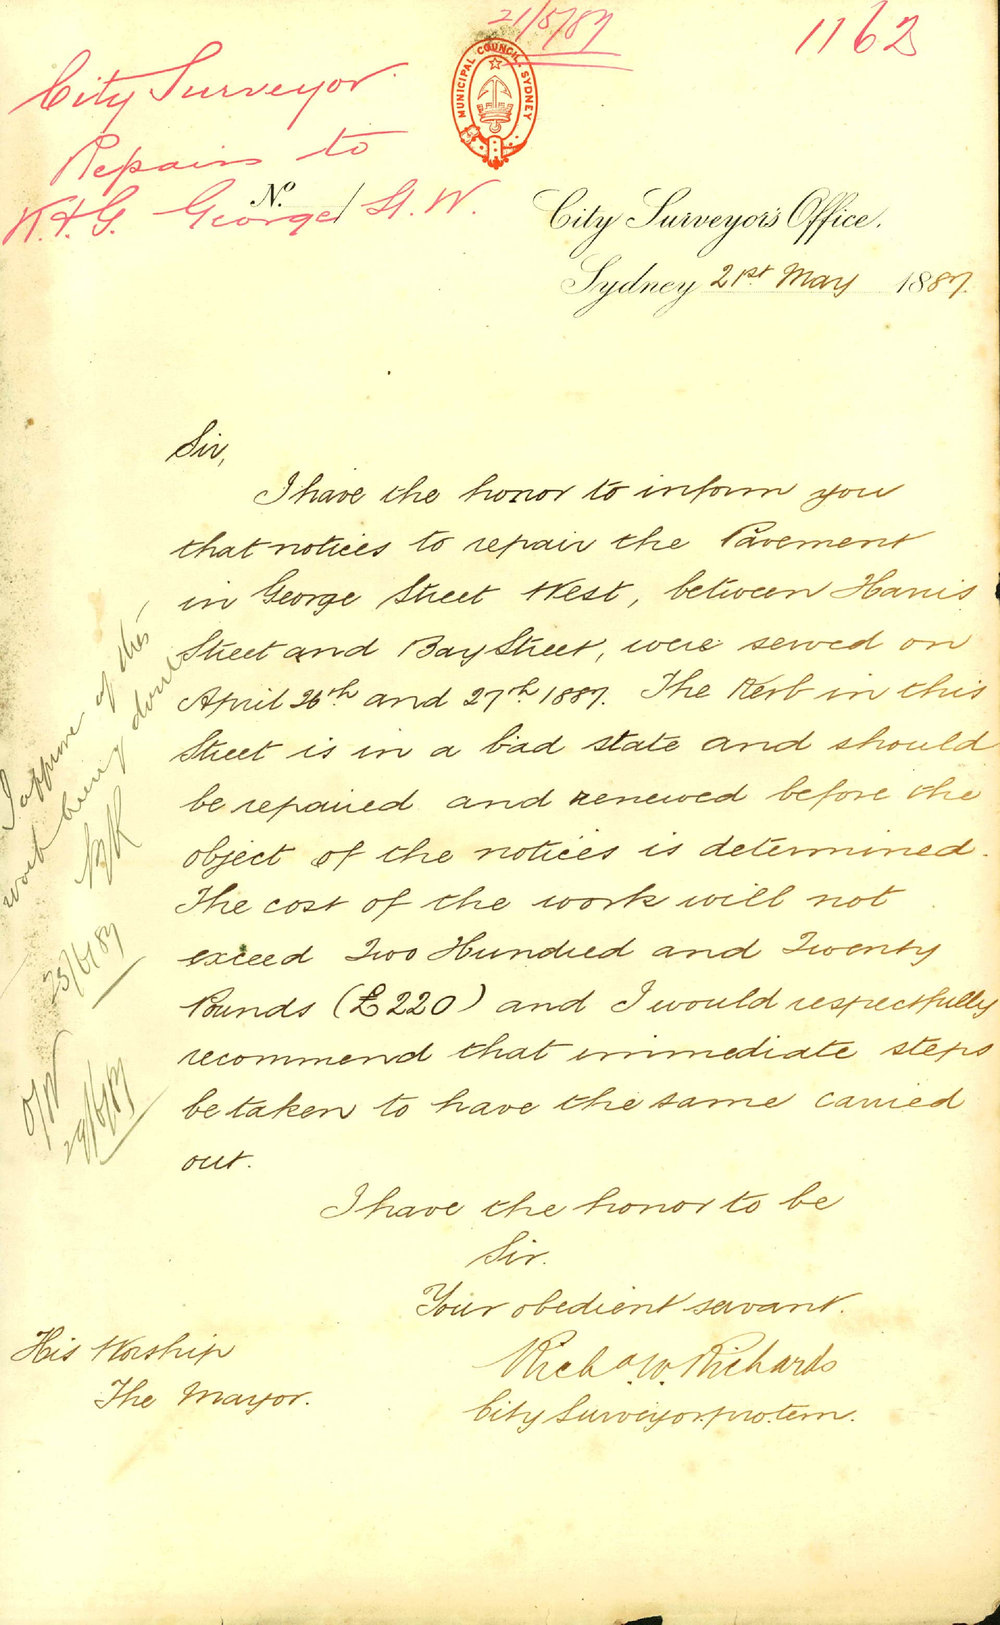 21/5/87
1162
City Surveyor
Repairs to
K. & G. George St. W.
MUNICIPAL COUNCIL SYDNEY
No.
City Surveyor's Office.
Sydney 21st May 1887.
Sir,
I have the honor to inform you
that notices to repair the Pavement
in George Street West, between Harris
Street and Bay Street, were served on
April 26th and 27th 1887. The Kerb in this
Street is in a bad state and should
be repaired and renewed before the
object of the notices is determined.
The cost of the work will not
exceed Two Hundred and Twenty
Pounds (£220) and I would respectfully
recommend that immediate steps
be taken to have the same carried
out.
I have the honor to be
Sir.
Your obedient servant.
Richd. W. Richards
City Surveyor pro. tem.
His Worship
The Mayor.
I approve of this
work being done
23/6/87
29/6/87